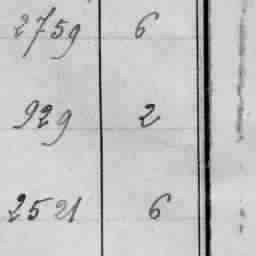 2759 6
929 2
2521 6